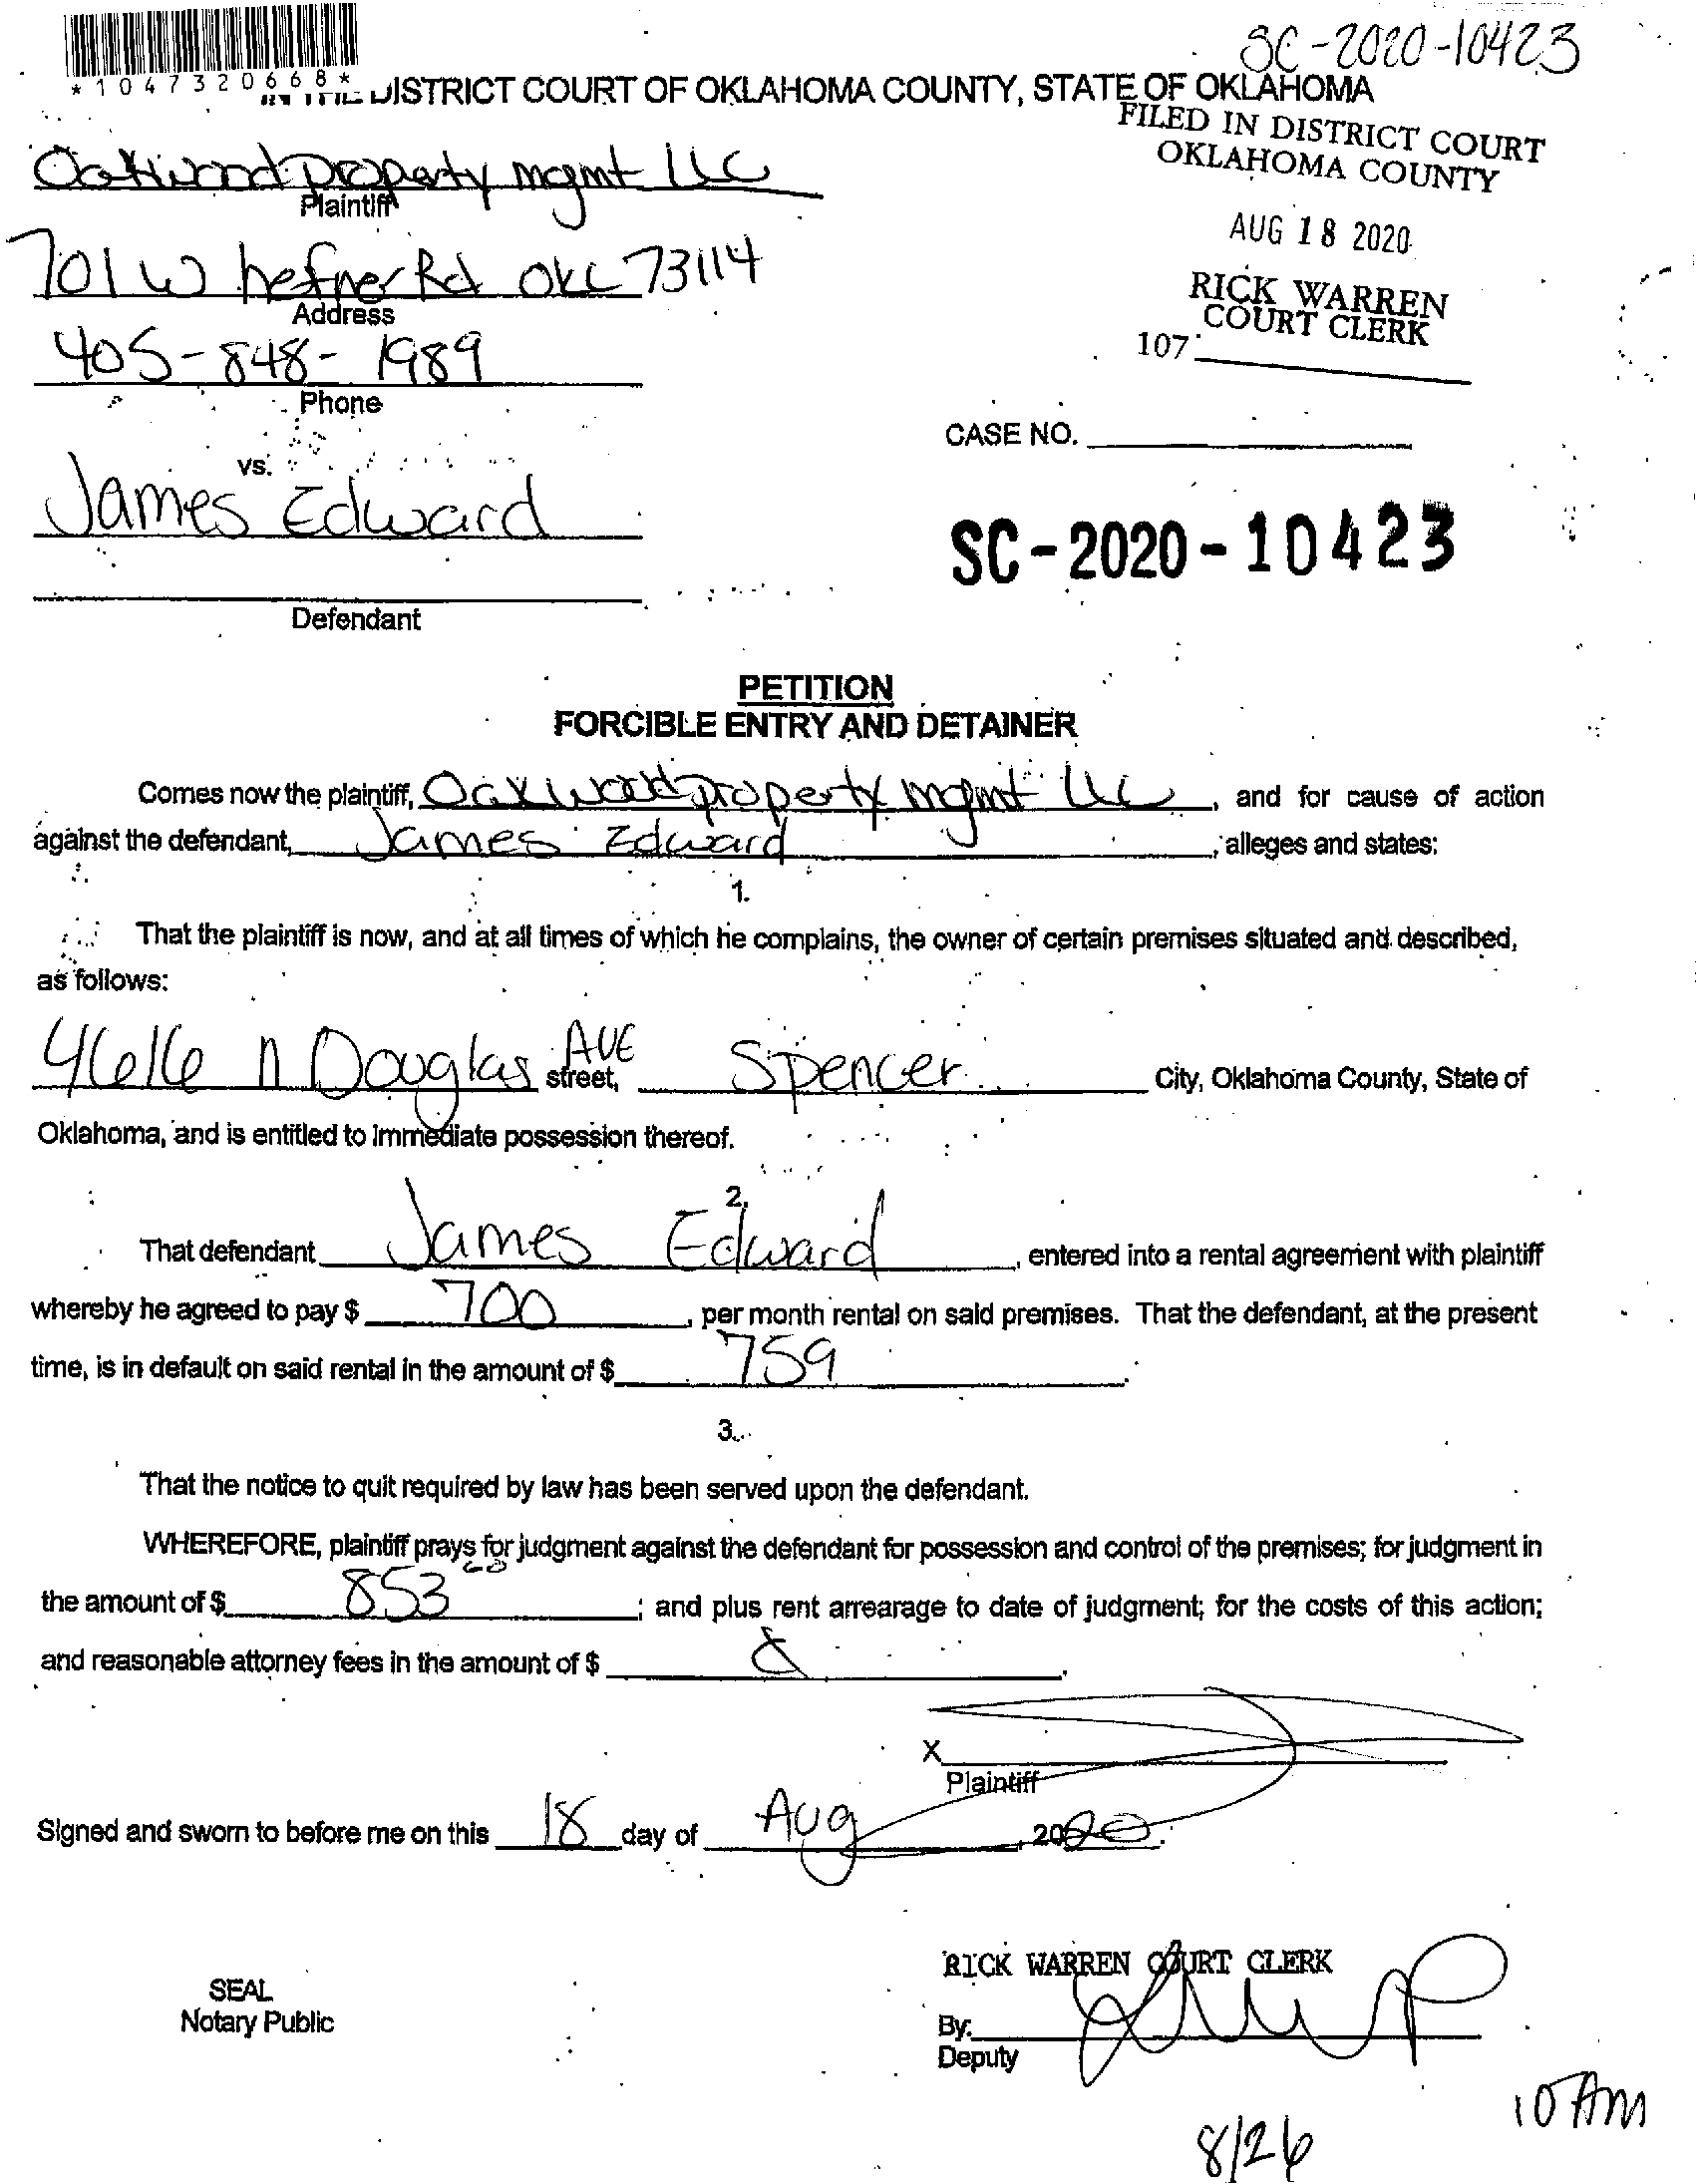 SC-2020-10423
*1047320668*
IN THE DISTRICT COURT OF OKLAHOMA COUNTY, STATE OF OKLAHOMA
FILED IN DISTRICT COURT
OKLAHOMA COUNTY
Oakwood property mgmt LLC
Plaintiff
AUG 18 2020
701 W hefner Rd OKC 73114
Address
RICK WARREN
COURT CLERK
107
405-848-1989
Phone
CASE NO.
vs.
James Edward
SC-2020-10423
Defendant
PETITION
FORCIBLE ENTRY AND DETAINER
Comes now the plaintiff, Oakwood property mgmt LLC, and for cause of action
against the defendant, James Edward, alleges and states:
1.
That the plaintiff is now, and at all times of which he complains, the owner of certain premises situated and described,
as follows:
4616 N Douglas AVE street, Spencer City, Oklahoma County, State of
Oklahoma, and is entitled to immediate possession thereof.
2.
That defendant James Edward, entered into a rental agreement with plaintiff
whereby he agreed to pay $ 700, per month rental on said premises. That the defendant, at the present
time, is in default on said rental in the amount of $ 759.
3.
That the notice to quit required by law has been served upon the defendant.
WHEREFORE, plaintiff prays for judgment against the defendant for possession and control of the premises; for judgment in
the amount of $ 853; and plus rent arrearage to date of judgment; for the costs of this action;
and reasonable attorney fees in the amount of $
X
Plaintiff
Signed and sworn to before me on this 18 day of Aug, 2020.
RICK WARREN COURT CLERK
SEAL
Notary Public
By:
Deputy
10 AM
8/26